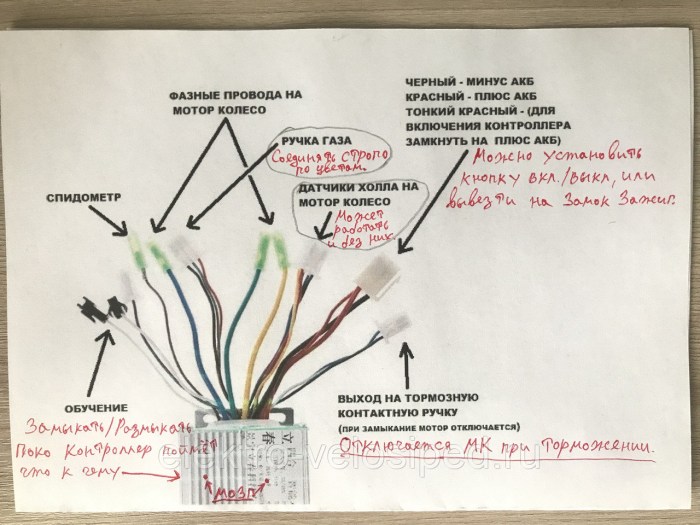 ФАЗНЫЕ ПРОВОДА НА
МОТОР КОЛЕСО
ЧЕРНЫЙ - МИНУС АКБ
КРАСНЫЙ - ПЛЮС АКБ
ТОНКИЙ КРАСНЫЙ - (ДЛЯ
ВКЛЮЧЕНИЯ КОНТРОЛЛЕРА
ЗАМКНУТЬ НА ПЛЮС АКБ)
Можно установить
кнопку вкл./выкл, или
вывезти на Замок Зажиг.
РУЧКА ГАЗА
Соединять строго
по цветам.
ДАТЧИКИ ХОЛЛА НА
МОТОР КОЛЕСО
Может
работать
и без них.
СПИДОМЕТР
ОБУЧЕНИЕ
Замыкать/Размыкать
Пока Контроллер поймёт
что к чему
ВЫХОД НА ТОРМОЗНУЮ
КОНТАКТНУЮ РУЧКУ
(ПРИ ЗАМЫКАНИЕ МОТОР ОТКЛЮЧАЕТСЯ)
Отключается МК при Торможении.
МОЗГ
elektro-velosiped.ru